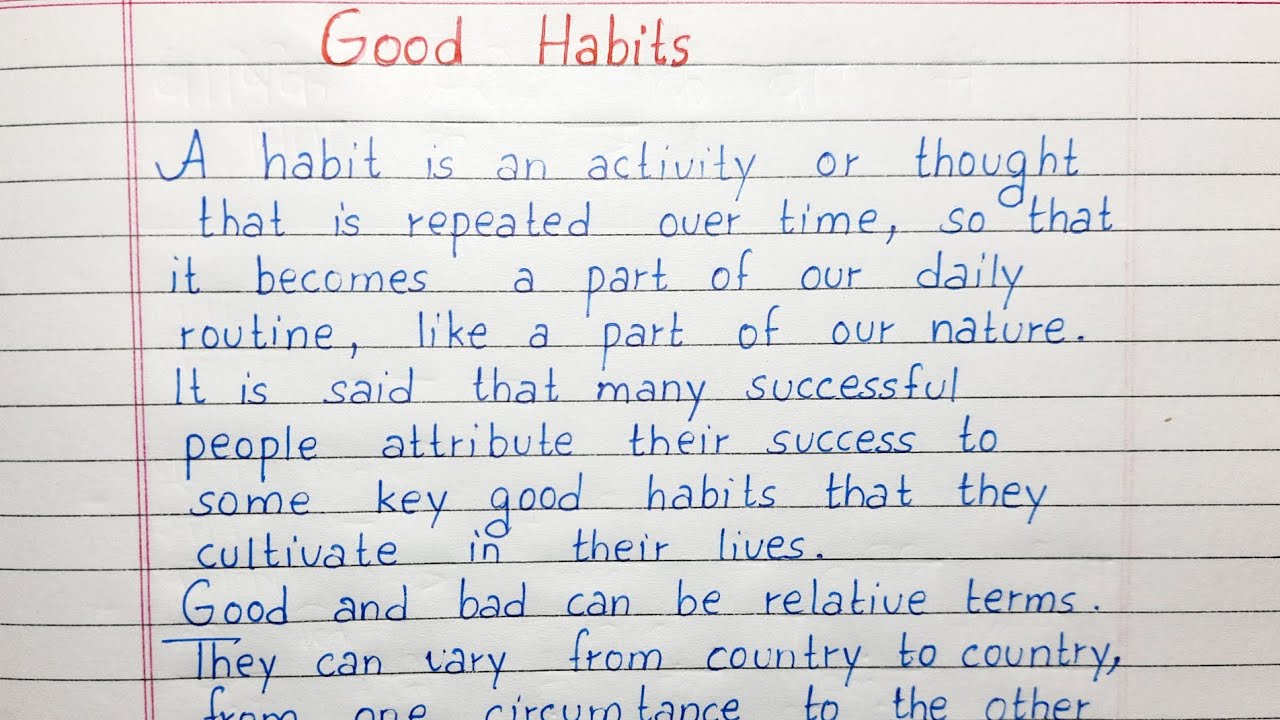 Good Habits
A habit is an activity or thought
that is repeated over time, so that
it becomes a part of our daily
routine, like a part of our nature.
It is said that many successful
people attribute their success to
some key good habits that they
cultivate in their lives.
Good and bad can be relative terms.
They can vary from country to country,
from one circumtance to the other